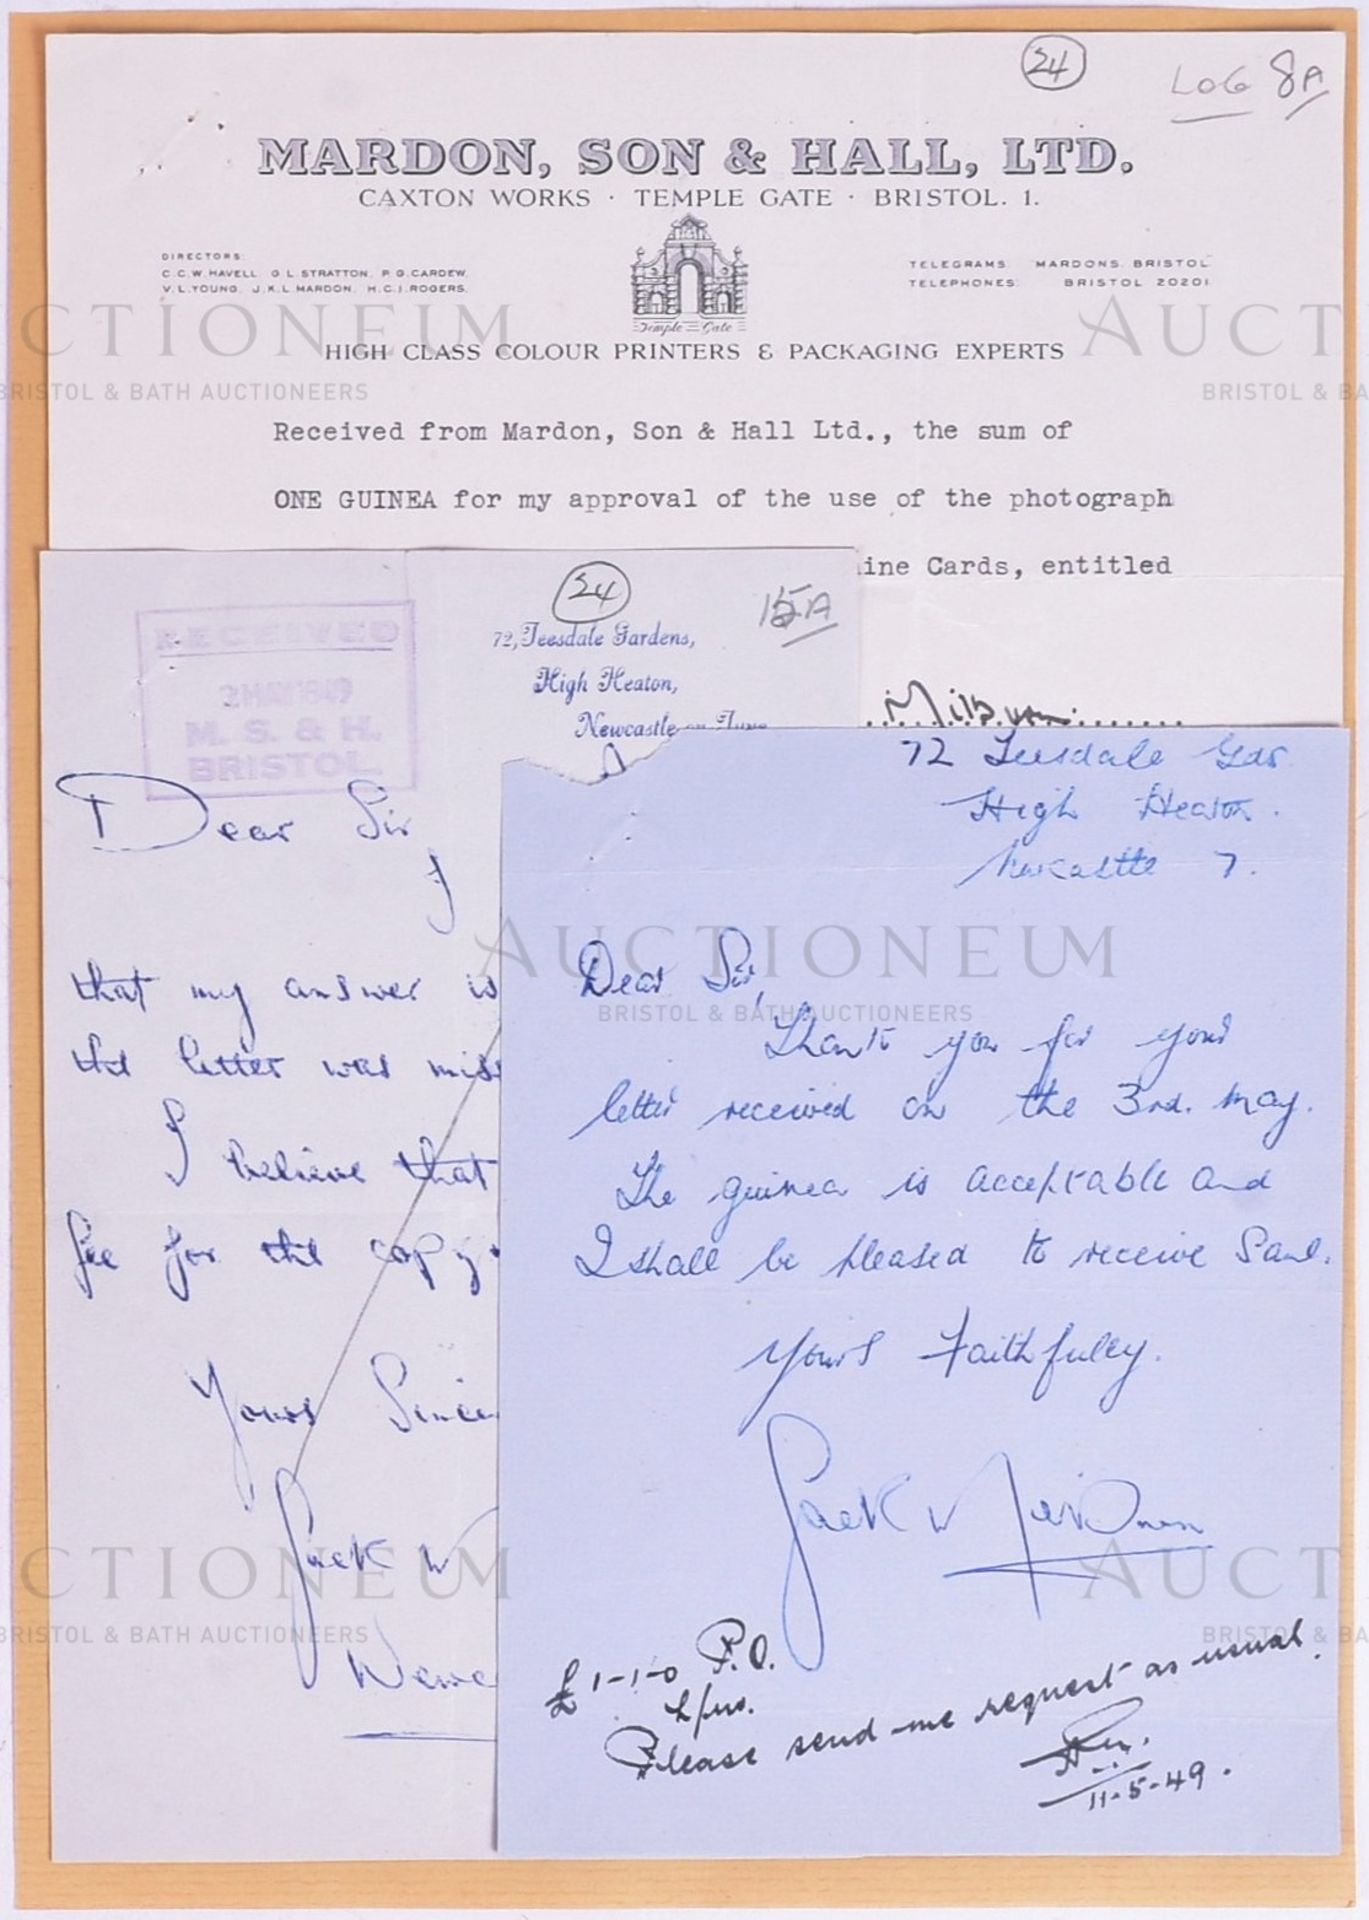 24
LOG 8A
MARDON, SON & HALL, LTD.
CAXTON WORKS · TEMPLE GATE · BRISTOL. 1.
DIRECTORS:
C.C.W. HAVELL. G L. STRATTON. P G. CARDEW.
V. L. YOUNG. J.K.L. MARDON. H.C.J. ROGERS.
TELEGRAMS: MARDONS. BRISTOL
TELEPHONES: BRISTOL 20201
Temple Gate
HIGH CLASS COLOUR PRINTERS & PACKAGING EXPERTS
Received from Mardon, Son & Hall Ltd., the sum of
ONE GUINEA for my approval of the use of the photograph
ine Cards, entitled
Milburn
24
15A
RECEIVED
2 MAY 1949
M. S. & H.
BRISTOL
72, Teesdale Gardens,
High Heaton,
Newcastle on Tyne
Dear Sir
I
that my answer is
the letter was miss
I believe that
fee for the copy.
Yours Since
Jack W
Newc
72 Teesdale Gdr
High Heaton.
Newcastle 7.
Dear Sir,
Thank you for your
letter received on the 3rd. May.
The guinea is acceptable and
I shall be pleased to receive same.
Yours Faithfully.
Jack W Milburn
£1-1-0 P.O.
Please send me request as usual.
11-5-49.
AUCTIONEUM
BRISTOL & BATH AUCTIONEERS